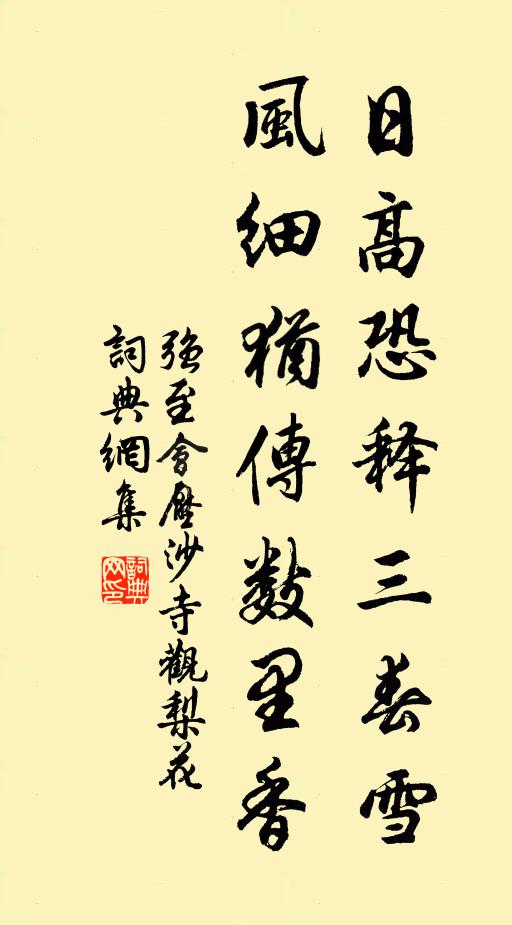 日高恐释三春雪
風細猶傳数里香
強至會壓沙寺觀梨花
詞典網集
詞典
网印